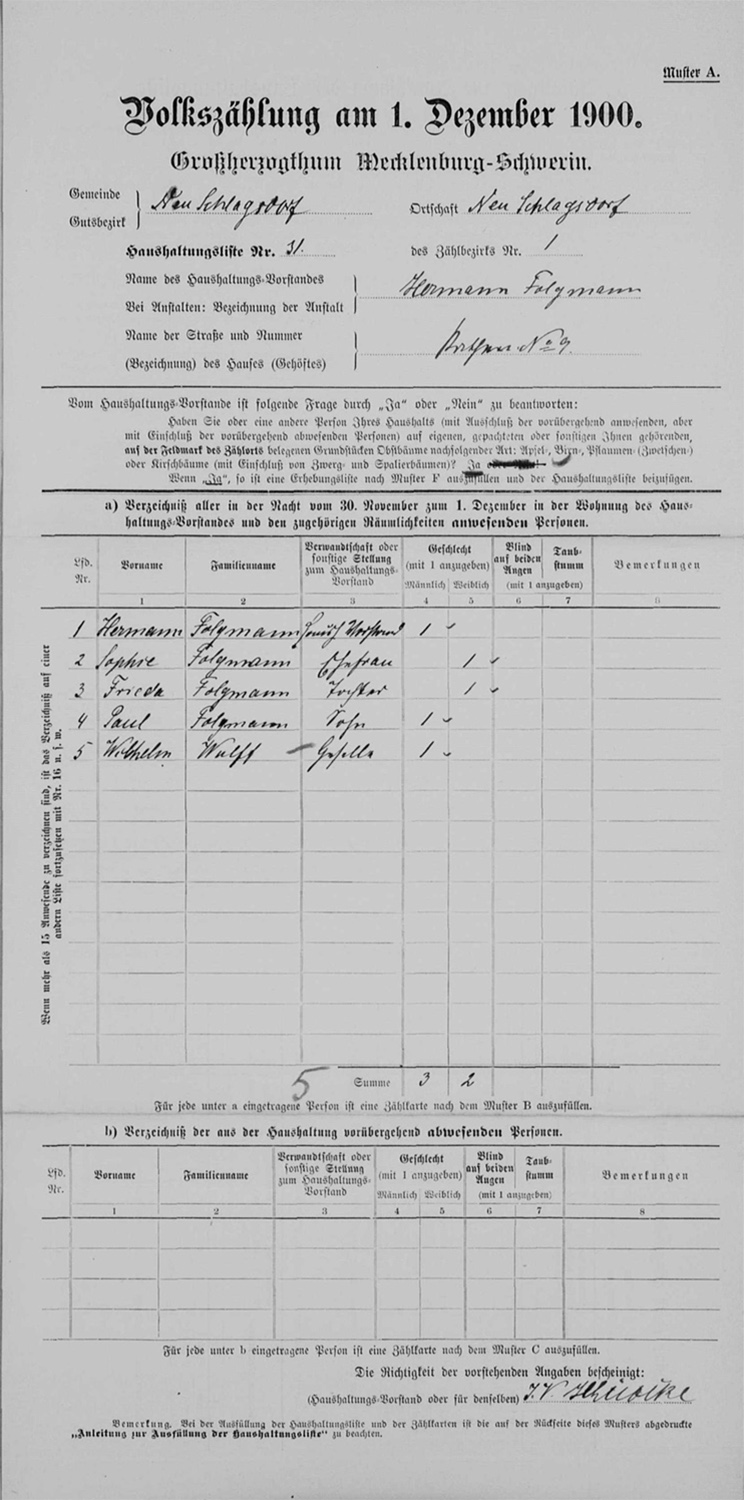 Muster A.
Volkszählung am 1. Dezember 1900.
Großherzogthum Mecklenburg-Schwerin.
Gemeinde
Gutsbezirk
Neu Schlagsdorf
Ortschaft Neu Schlagsdorf
Haushaltungsliste Nr. 31.
des Zählbezirks Nr. 1
Name des Haushaltungs-Vorstandes
Bei Anstalten: Bezeichnung der Anstalt
Hermann Folgmann
Name der Straße und Nummer
(Bezeichnung) des Hauses (Gehöftes)
No 9.
Vom Haushaltungs-Vorstande ist folgende Frage durch „Ja“ oder „Nein“ zu beantworten:
Haben Sie oder eine andere Person Ihres Haushalts (mit Ausschluß der vorübergehend anwesenden, aber
mit Einschluß der vorübergehend abwesenden Personen) auf eigenen, gepachteten oder sonstigen Ihnen gehörenden,
auf der Feldmark des Zählorts belegenen Grundstücken Obstbäume nachfolgender Art: Apfel-, Birn-, Pflaumen-(Zwetschen-)
oder Kirschbäume (mit Einschluß von Zwerg- und Spalierbäumen)? Ja
Wenn „Ja“, so ist eine Erhebungsliste nach Muster F auszufüllen und der Haushaltungsliste beizufügen.
a) Verzeichniß aller in der Nacht vom 30. November zum 1. Dezember in der Wohnung des Haus-
haltungs-Vorstandes und den zugehörigen Räumlichkeiten anwesenden Personen.
Lfd. Nr. Vorname Familienname Verwandtschaft oder sonstige Stellung zum Haushaltungs-Vorstand Geschlecht (mit 1 anzugeben) Männlich Weiblich Blind auf beiden Augen Taub-stumm (mit 1 anzugeben) Bemerkungen
1 2 3 4 5 6 7 8
1 Hermann Folgmann Vorstand 1
2 Sophie Folgmann Ehefrau 1
3 Frieda Folgmann Tochter 1
4 Paul Folgmann Sohn 1
5 Wilhelm Wulff Geselle 1
Wenn mehr als 15 Anwesende zu verzeichnen sind, ist das Verzeichniß auf einer
andern Liste fortzusetzen mit Nr. 16 u. s. w.
5 Summe 3 2
Für jede unter a eingetragene Person ist eine Zählkarte nach dem Muster B auszufüllen.
b) Verzeichniß der aus der Haushaltung vorübergehend abwesenden Personen.
Lfd. Nr. Vorname Familienname Verwandtschaft oder sonstige Stellung zum Haushaltungs-Vorstand Geschlecht (mit 1 anzugeben) Männlich Weiblich Blind auf beiden Augen Taub-stumm (mit 1 anzugeben) Bemerkungen
1 2 3 4 5 6 7 8
Für jede unter b eingetragene Person ist eine Zählkarte nach dem Muster C auszufüllen.
Die Richtigkeit der vorstehenden Angaben bescheinigt:
(Haushaltungs-Vorstand oder für denselben) I. V.
Bemerkung. Bei der Ausfüllung der Haushaltungsliste und der Zählkarten ist die auf der Rückseite dieses Musters abgedruckte
„Anleitung zur Ausfüllung der Haushaltungsliste“ zu beachten.